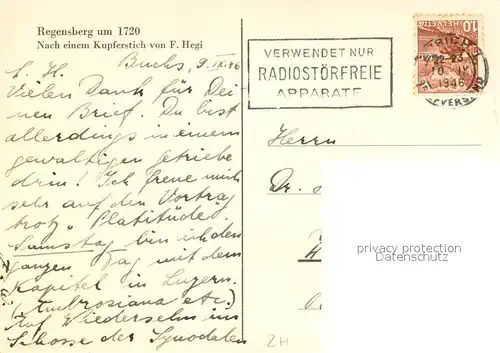 Regensberg um 1720
Nach einem Kupferstich von F. Hegi
Buchs, 9.IX.46
L. H.
Vielen Dank für Dei-
nen Brief. Du bist
allerdings in einem
gewaltigen Getriebe
drin! Ich freue mich
sehr auf den Vortrag
trotz „Platitüde".
Samstag bin ich den
ganzen Tag mit dem
Kapitel in Luzern.
(Ambrosiana etc.)
Auf Wiedersehn im
Schosse der Synodalen
VERWENDET NUR
RADIOSTÖRFREIE
APPARATE
HELVETIA
10
22-23
1946
BRIEFVERSAND
Herrn
Dr.
privacy protection
Datenschutz
ZH